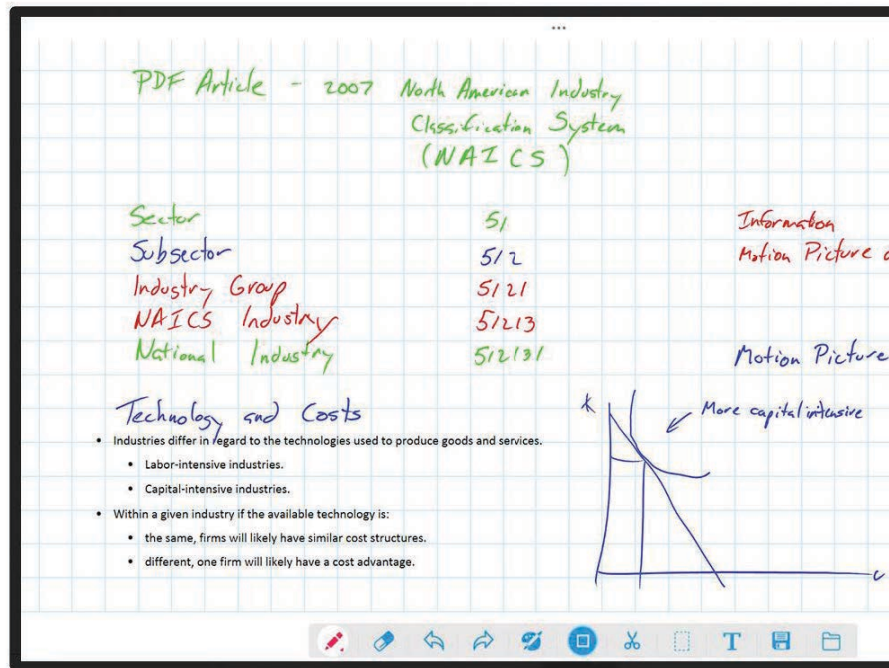 PDF Article - 2007 North American Industry
Classification System
(NAICS)
Sector 51 Information
Subsector 512 Motion Picture
Industry Group 5121
NAICS Industry 51213
National Industry 512131 Motion Picture
Technology and Costs
K More capital intensive
• Industries differ in regard to the technologies used to produce goods and services.
• Labor-intensive industries.
• Capital-intensive industries.
• Within a given industry if the available technology is:
• the same, firms will likely have similar cost structures.
• different, one firm will likely have a cost advantage.
T